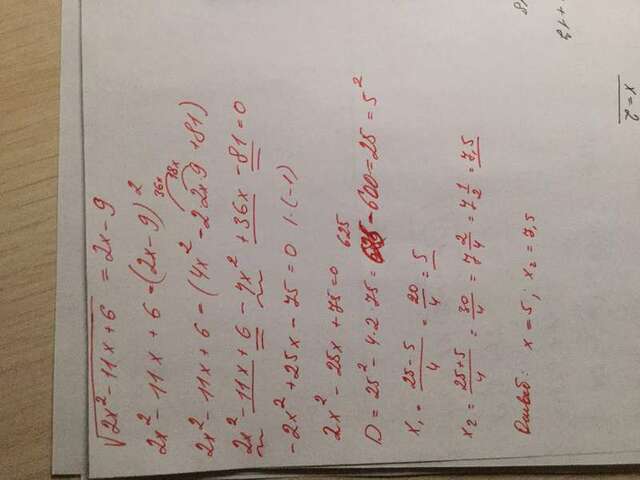 √2x² - 11x + 6 = 2x - 9
2x² - 11x + 6 = (2x - 9)²
36x 18x
2x² - 11x + 6 = (4x² - 2 2x 9 + 81)
2x² - 11x + 6 - 4x² + 36x - 81 = 0
-2x² + 25x - 75 = 0 |·(-1)
2x² - 25x + 75 = 0
625
D = 25² - 4·2·75 = 625 - 600 = 25 = 5²
x₁ = (25 - 5)/4 = 20/4 = 5
x₂ = (25 + 5)/4 = 30/4 = 7 2/4 = 7 1/2 = 7,5
Ответ: x = 5; x₂ = 7,5
x = 2